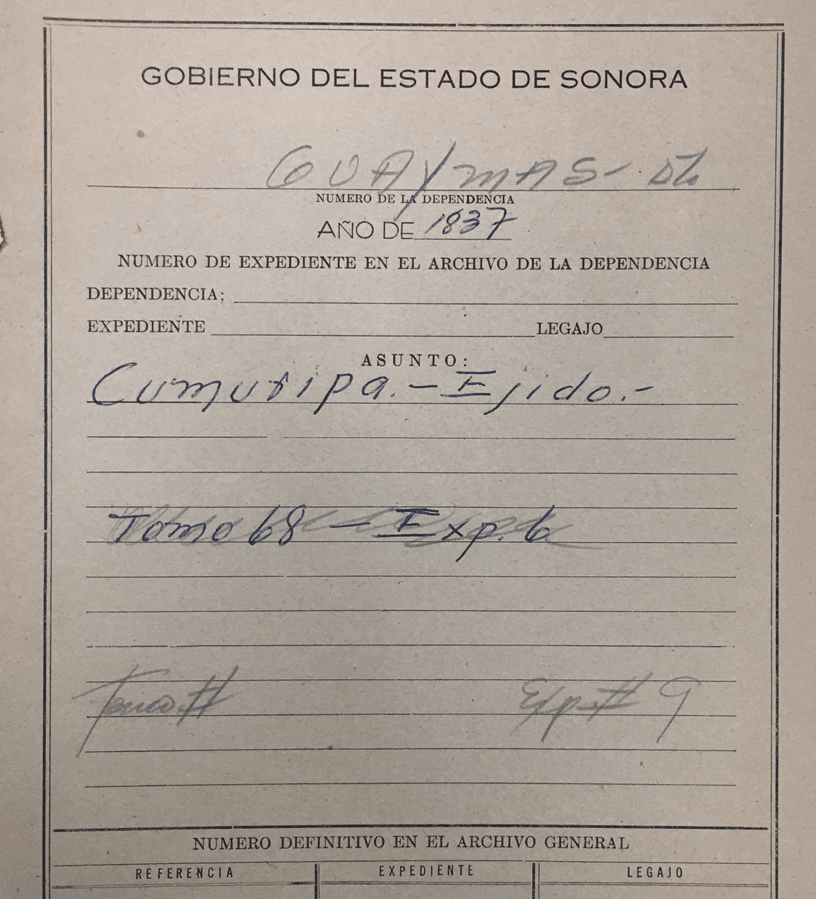 GOBIERNO DEL ESTADO DE SONORA
GUAYMAS-
NUMERO DE LA DEPENDENCIA
AÑO DE 1837
NUMERO DE EXPEDIENTE EN EL ARCHIVO DE LA DEPENDENCIA
DEPENDENCIA:
EXPEDIENTE LEGAJO
ASUNTO:
Cumuripa.- Ejido.-
Tomo 68 - Exp. 6
Tomo # Exp # 9
NUMERO DEFINITIVO EN EL ARCHIVO GENERAL
REFERENCIA EXPEDIENTE LEGAJO